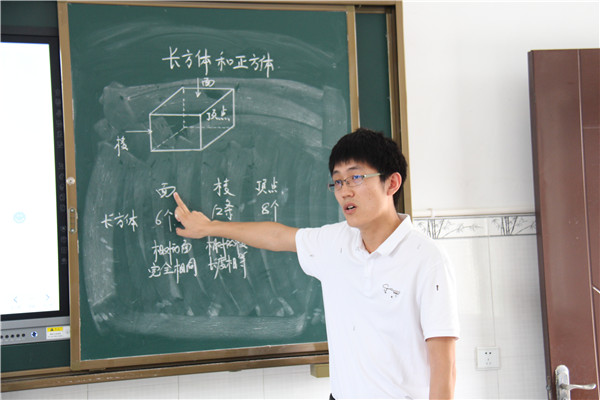 长方体和正方体
面
顶点
棱
面 棱 顶点
长方体 6个 12条 8个
相对的面
完全相同 长度相等